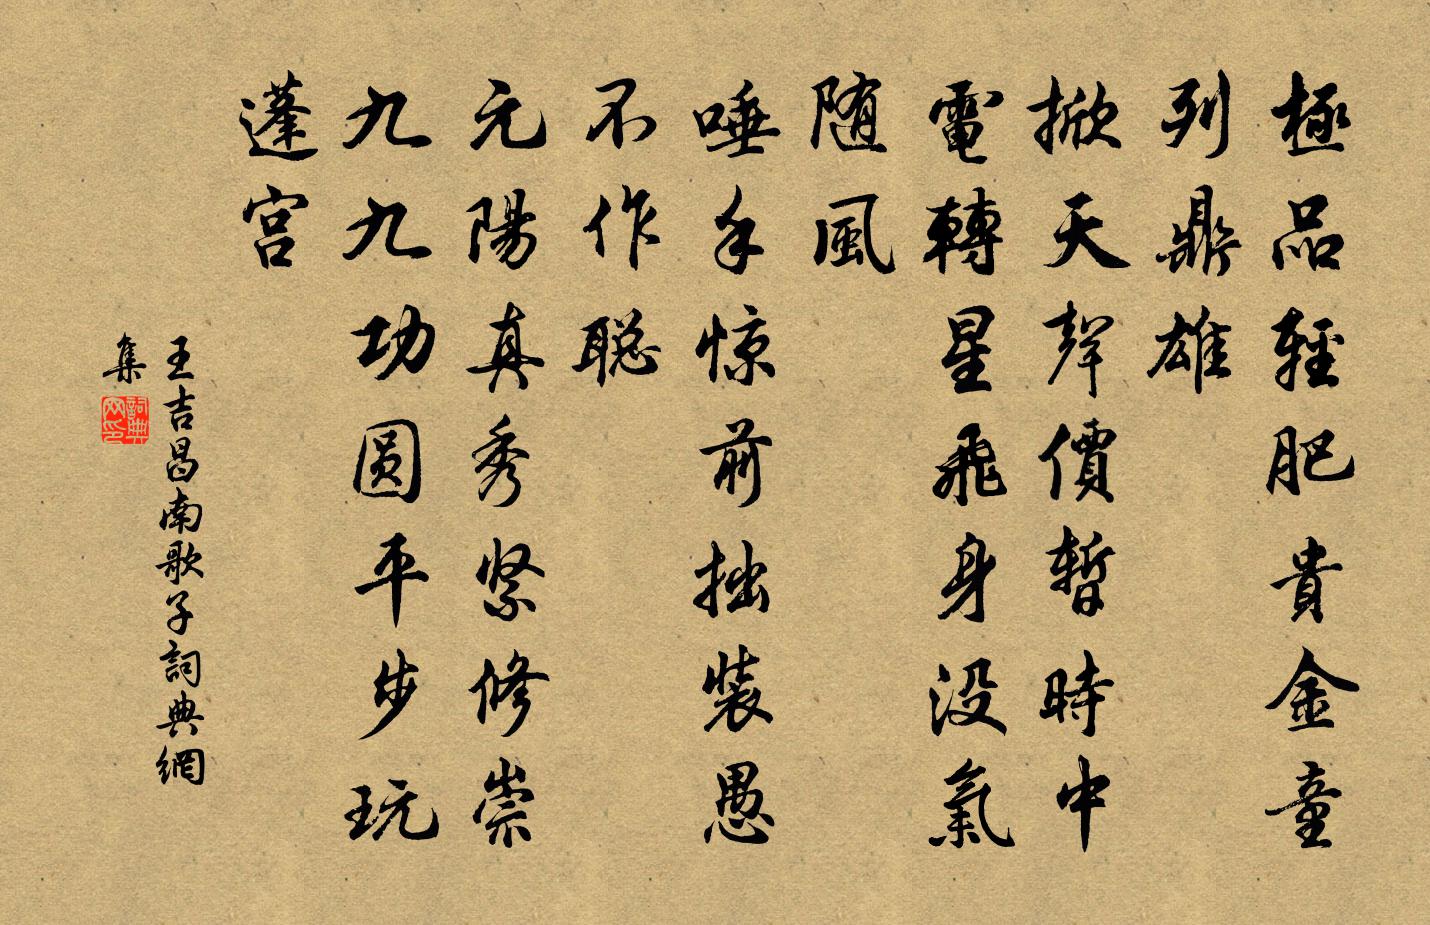 極品輕肥貴金童
列鼎雄
掀天聲價暫時中
電轉星飛身没氣
随風
唾手惊前拙裝愚
不作聪
元陽真秀紧修崇
九九功圆平步玩
蓬宫
王吉昌南歌子詞典網
集
詞典
网印